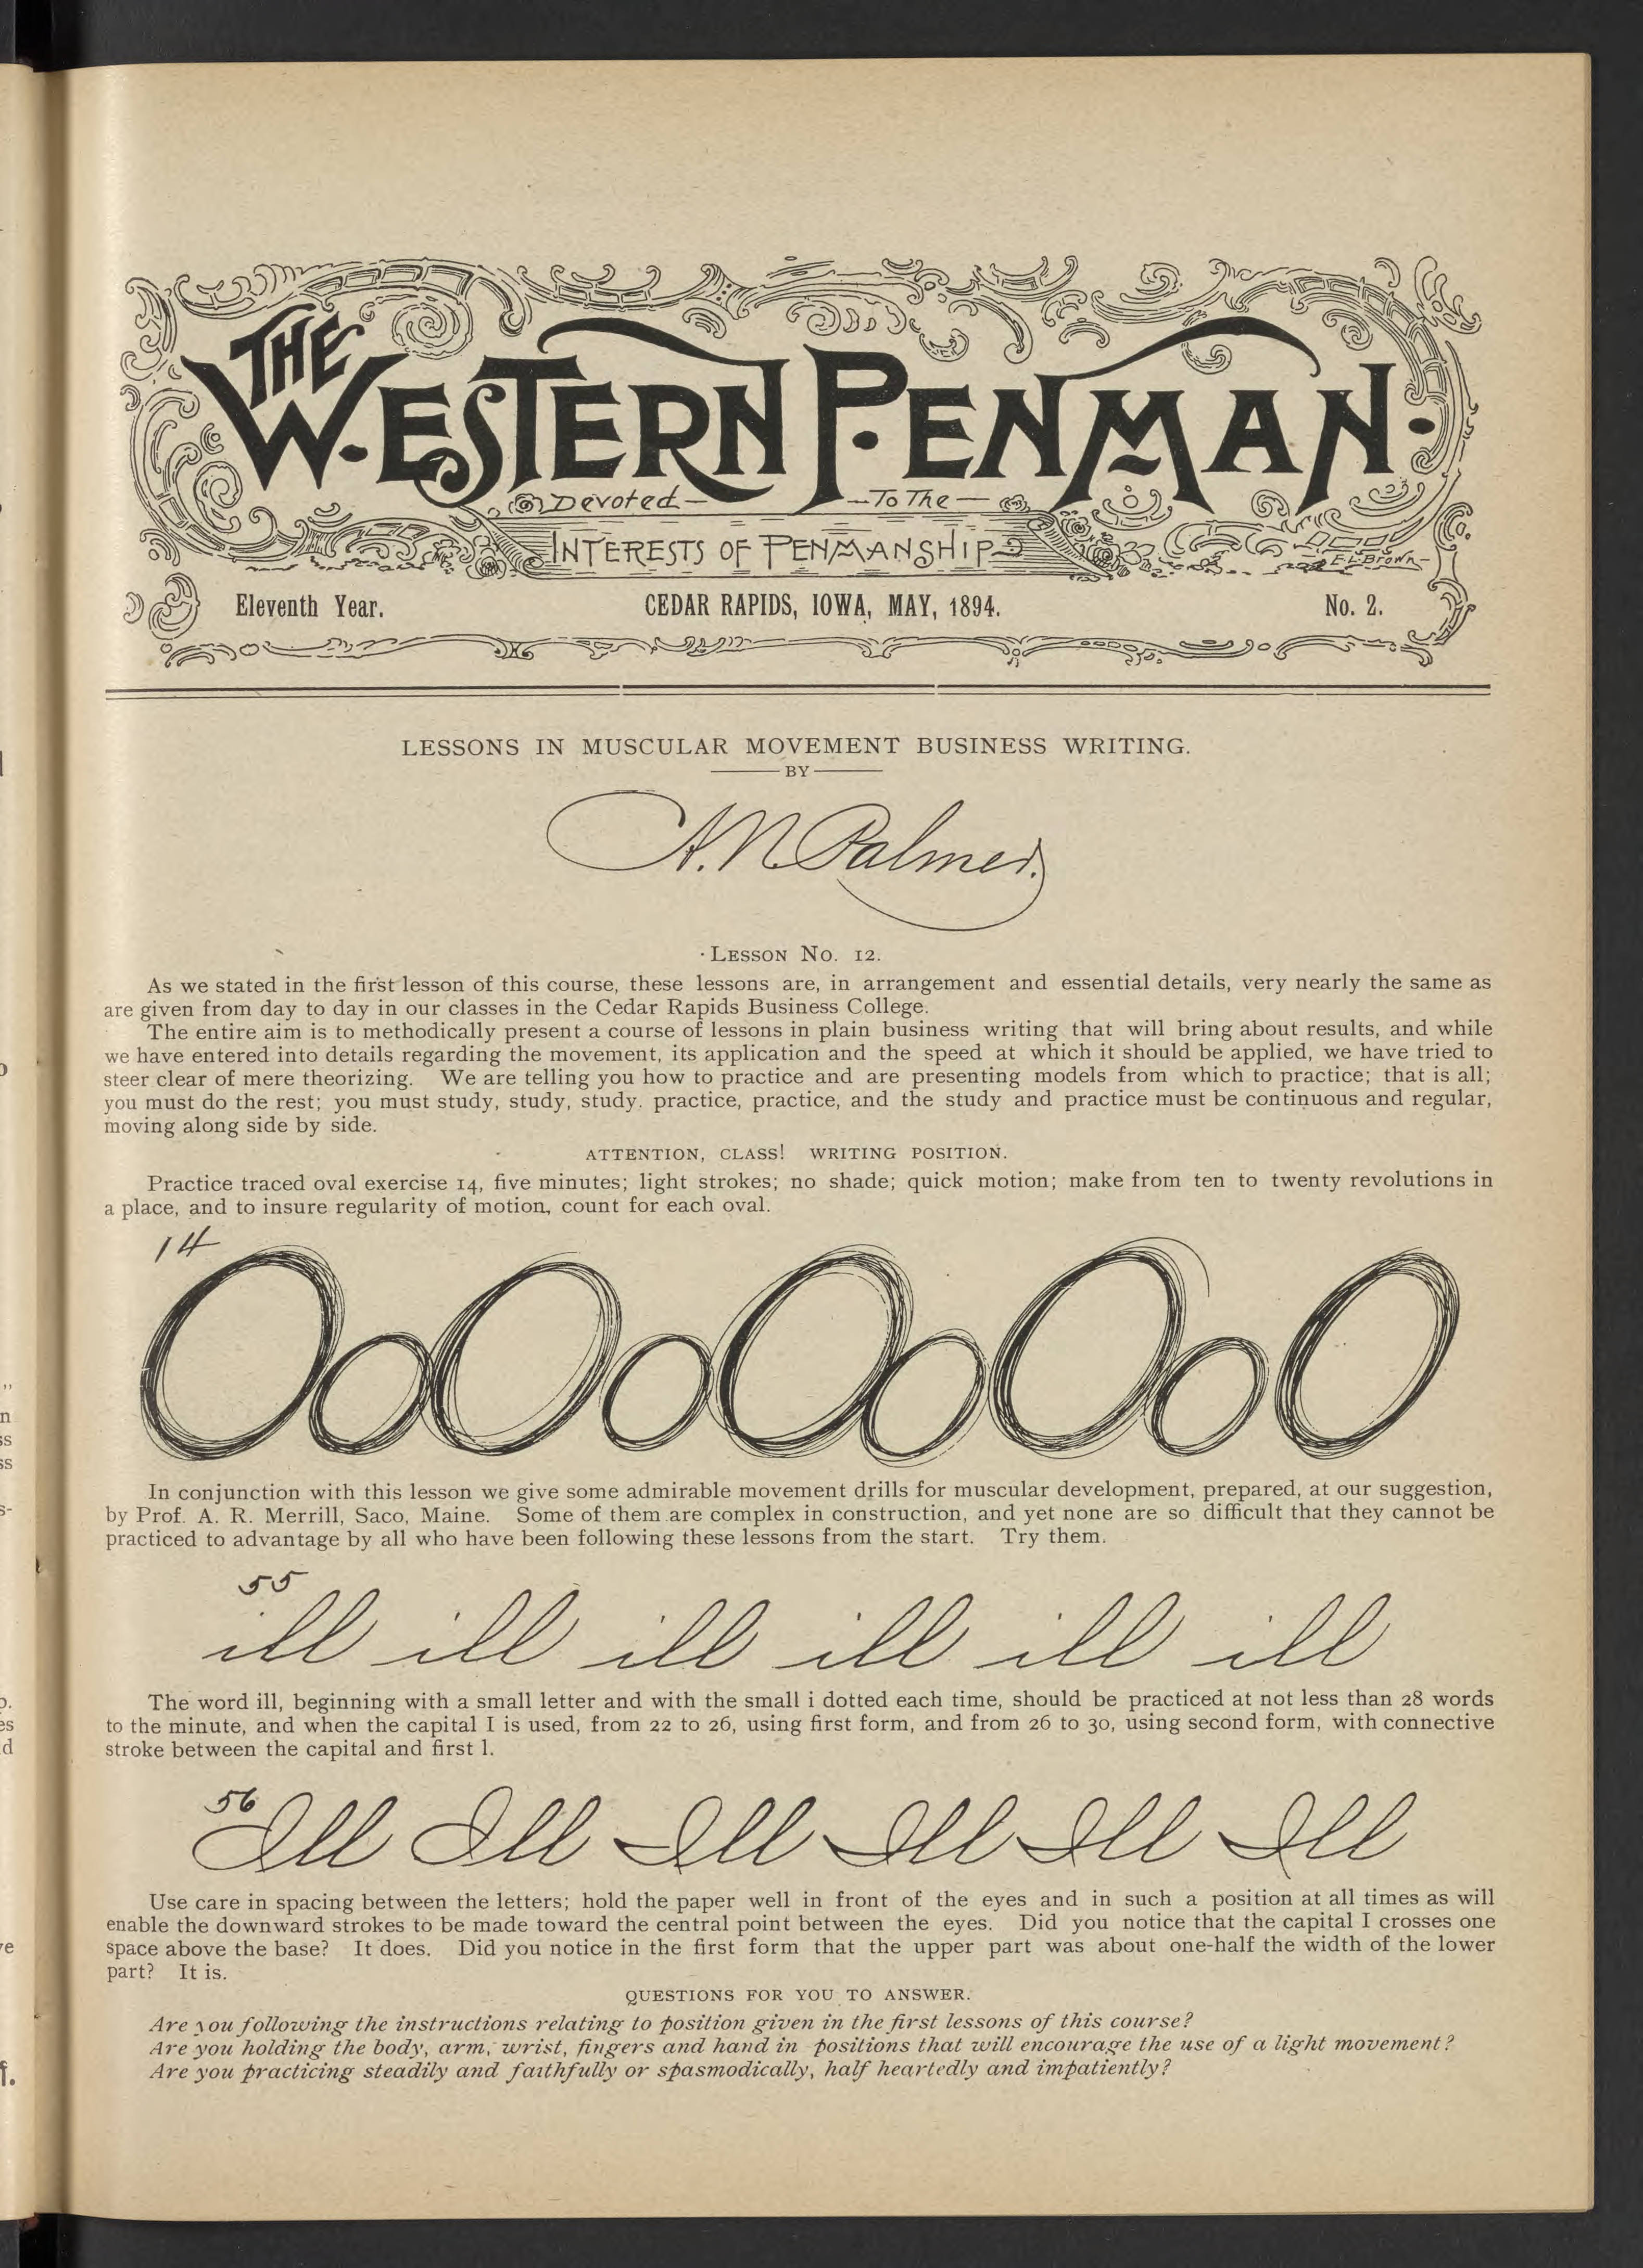 THE
WESTERN PENMAN
Devoted To The
INTERESTS OF PENMANSHIP
E.L. Brown
Eleventh Year. CEDAR RAPIDS, IOWA, MAY, 1894. No. 2.
LESSONS IN MUSCULAR MOVEMENT BUSINESS WRITING.
BY
A. N. Palmer.
LESSON NO. 12.
As we stated in the first lesson of this course, these lessons are, in arrangement and essential details, very nearly the same as
are given from day to day in our classes in the Cedar Rapids Business College.
The entire aim is to methodically present a course of lessons in plain business writing that will bring about results, and while
we have entered into details regarding the movement, its application and the speed at which it should be applied, we have tried to
steer clear of mere theorizing. We are telling you how to practice and are presenting models from which to practice; that is all;
you must do the rest; you must study, study, study. practice, practice, and the study and practice must be continuous and regular,
moving along side by side.
ATTENTION, CLASS! WRITING POSITION.
Practice traced oval exercise 14, five minutes; light strokes; no shade; quick motion; make from ten to twenty revolutions in
a place, and to insure regularity of motion, count for each oval.
14
In conjunction with this lesson we give some admirable movement drills for muscular development, prepared, at our suggestion,
by Prof. A. R. Merrill, Saco, Maine. Some of them are complex in construction, and yet none are so difficult that they cannot be
practiced to advantage by all who have been following these lessons from the start. Try them.
55
ill ill ill ill ill ill
The word ill, beginning with a small letter and with the small i dotted each time, should be practiced at not less than 28 words
to the minute, and when the capital I is used, from 22 to 26, using first form, and from 26 to 30, using second form, with connective
stroke between the capital and first l.
56
Ill Ill Ill Ill Ill Ill
Use care in spacing between the letters; hold the paper well in front of the eyes and in such a position at all times as will
enable the downward strokes to be made toward the central point between the eyes. Did you notice that the capital I crosses one
space above the base? It does. Did you notice in the first form that the upper part was about one-half the width of the lower
part? It is.
QUESTIONS FOR YOU TO ANSWER.
Are you following the instructions relating to position given in the first lessons of this course?
Are you holding the body, arm, wrist, fingers and hand in positions that will encourage the use of a light movement?
Are you practicing steadily and faithfully or spasmodically, half heartedly and impatiently?